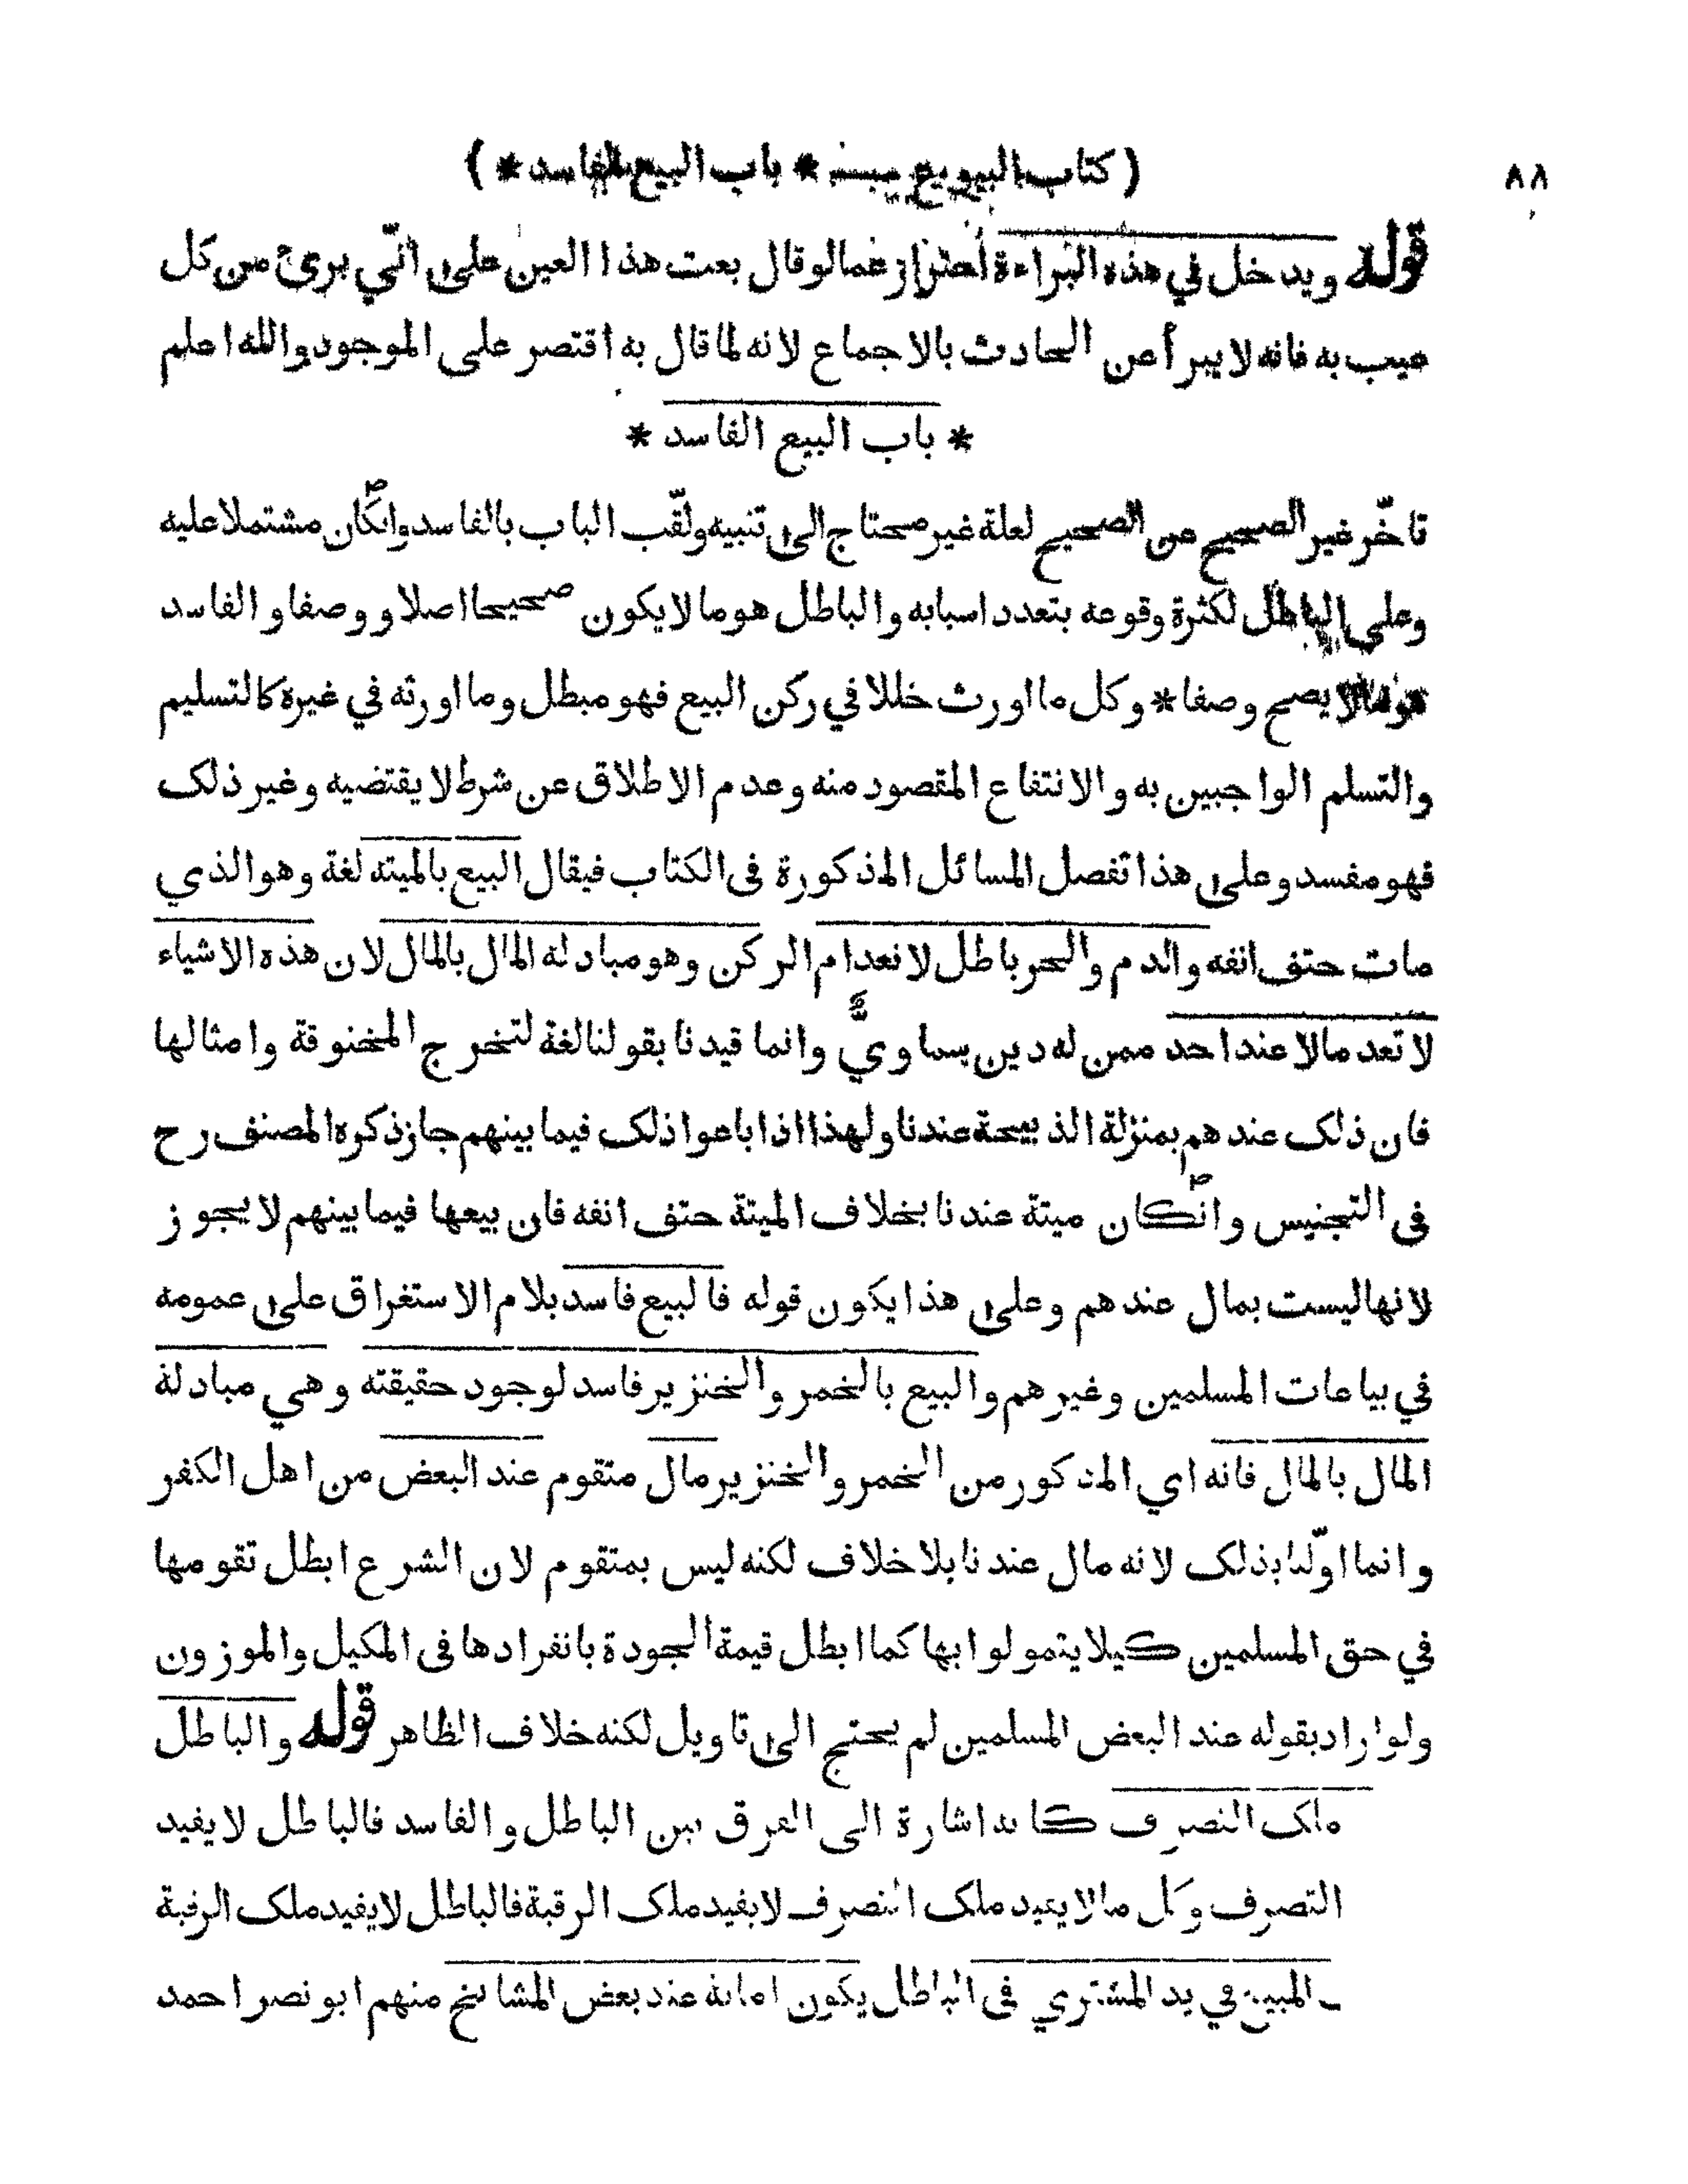 ٨٨
( كتاب البيوع * باب البيع الفاسد * )
قوله ويدخل في هذه البراءة احتراز عمالو قال بعت هذا العين على انّي برئ من كل
عيب به فانه لا يبرأ عن الحادث بالاجماع لانه لما قال به اقتصر على الموجود والله اعلم
* باب البيع الفاسد *
تاخّر غير الصحيح عن الصحيح لعلة غير محتاج الى تنبيه ولقّب الباب بالفاسد وانكان مشتملا عليه
وعلى الباطل لكثرة وقوعه بتعدد اسبابه والباطل هو ما لا يكون صحيحا اصلا ووصفا والفاسد
هو ما لا يصح وصفا * وكل ما اورث خللا في ركن البيع فهو مبطل وما اورثه في غيره كالتسليم
والتسلم الواجبين به والانتفاع المقصود منه وعدم الاطلاق عن شرط لا يقتضيه وغير ذلك
فهو مفسد وعلى هذا تفصل المسائل المذكورة فى الكتاب فيقال البيع بالميته لغة وهو الذي
مات حتف انفه والدم والحر باطل لانعدام الركن وهو مبادلة المال بالمال لان هذه الاشياء
لا تعد مالا عند احد ممن له دين سماويّ وانما قيدنا بقولنا لغة لتخرج المخنوقة وامثالها
فان ذلك عندهم بمنزلة الذبيحة عندنا ولهذا اذا باعوا ذلك فيما بينهم جاز ذكره المصنف رح
فى التجنيس وانكان ميتة عندنا بخلاف الميتة حتف انفه فان بيعها فيما بينهم لا يجوز
لانها ليست بمال عندهم وعلى هذا يكون قوله فالبيع فاسد بلام الاستغراق على عمومه
في بياعات المسلمين وغيرهم والبيع بالخمر والخنزير فاسد لوجود حقيقته وهي مبادلة
المال بالمال فانه اي المذكور من الخمر والخنزير مال متقوم عند البعض من اهل الكفر
وانما اوّلنا بذلك لانه مال عندنا بلا خلاف لكنه ليس بمتقوم لان الشرع ابطل تقومها
في حق المسلمين كيلا يتمولوا بها كما ابطل قيمة الجودة بانفرادها فى المكيل والموزون
ولو اراد بقوله عند البعض المسلمين لم يحتج الى تاويل لكنه خلاف الظاهر قوله والباطل
ملك التصرف كانه اشارة الى الفرق بين الباطل والفاسد فالباطل لا يفيد
التصرف وكل ما لا يفيد ملك التصرف لا يفيد ملك الرقبة فالباطل لا يفيد ملك الرقبة
المبيع في يد المشتري فى الباطل يكون امانة عند بعض المشائخ منهم ابو نصر احمد